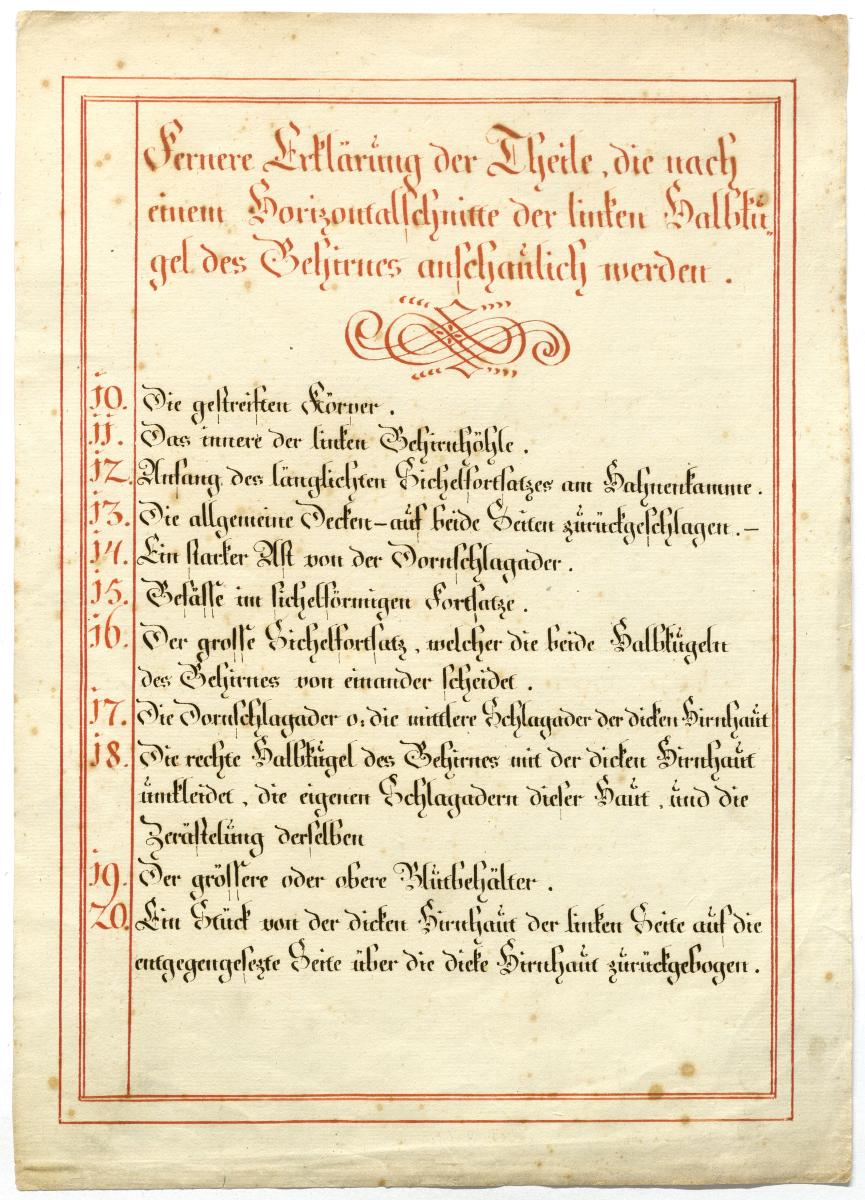 Fernere Erklärung der Theile, die nach
einem Horizontalschnitte der linken Halbkü„
gel des Gehirnes anschaulich werden.
10. Die gestreiften Körper.
11. Das innere der linken Gehirnhöhle.
12. Anfang des länglichten Sichelfortsatzes am Hahnenkamme.
13. Die allgemeine Decken – auf beide Seiten zurückgeschlagen. –
14. Ein starker Ast von der Dornschlagader.
15. Gefässe im sichelförmigen Fortsatze.
16. Der grosse Sichelfortsatz, welcher die beide Halbkugeln
des Gehirnes von einander scheidet.
17. Die Dornschlagader o: die mittlere Schlagader der dicken Hirnhaut
18. Die rechte Halbkugel des Gehirnes mit der dicken Hirnhaut
umkleidet, die eigenen Schlagadern dieser Haut, und die
Zerästelung derselben
19. Der grössere oder obere Blutbehälter.
20. Ein Stück von der dicken Hirnhaut der linken Seite auf die
entgegengesezte Seite über die dicke Hirnhaut zurückgebogen.